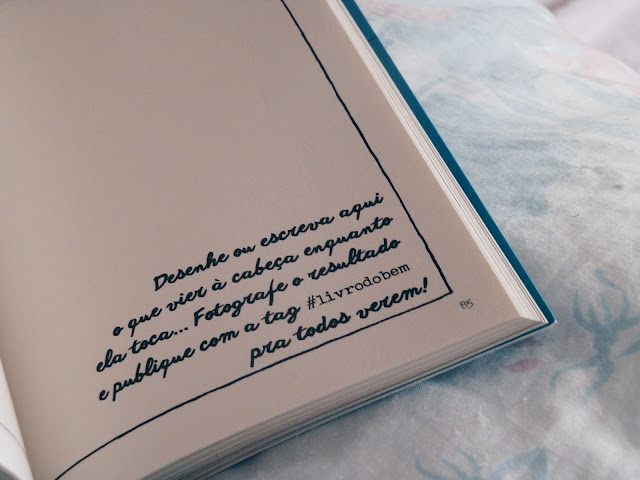 Desenhe ou escreva aqui
o que vier à cabeça enquanto
ela toca... Fotografe o resultado
e publique com a tag #livrodobem
pra todos verem!
85